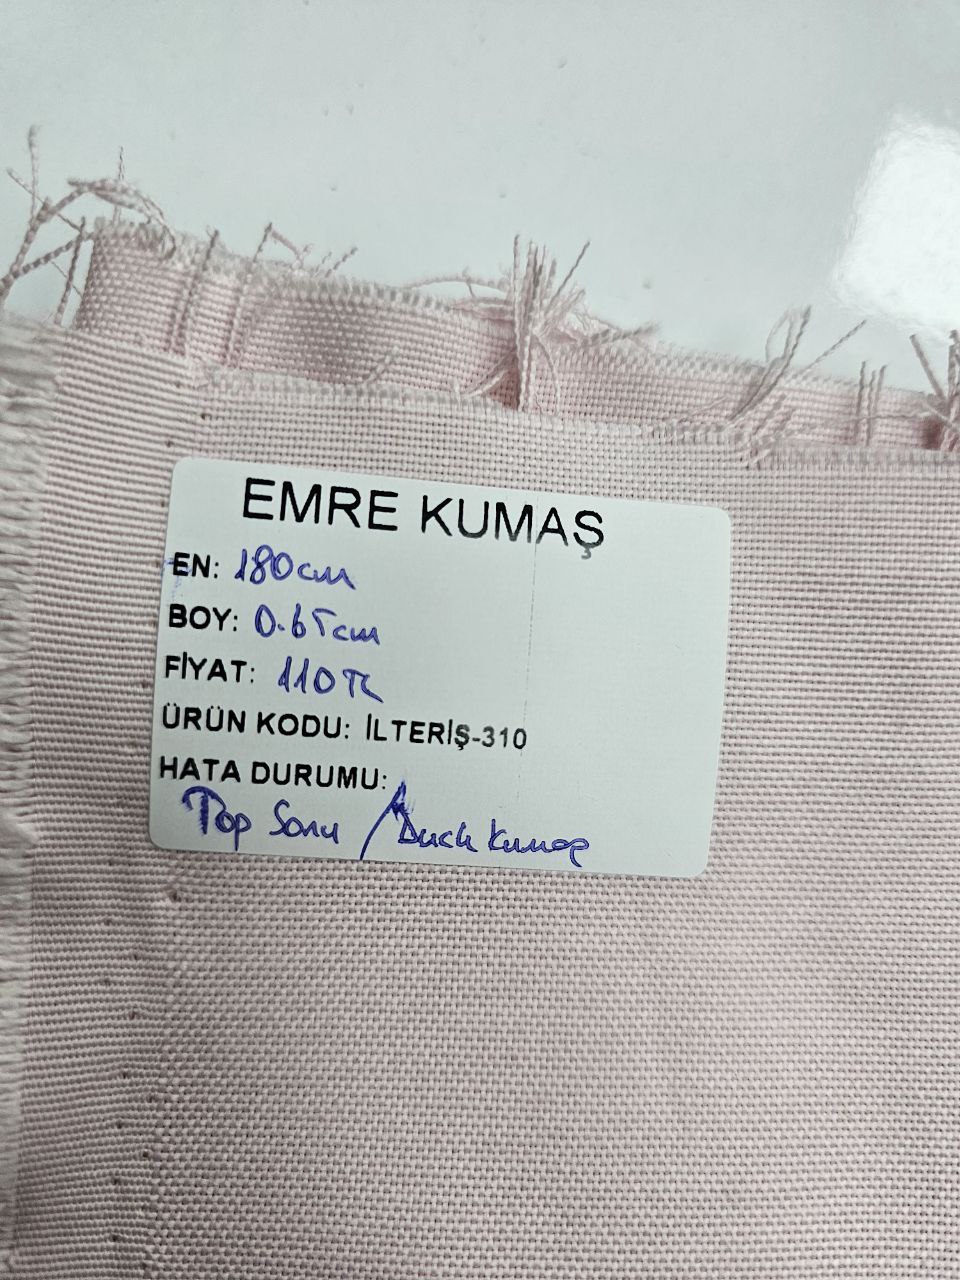 EMRE KUMAŞ
EN: 180cm
BOY: 0.65cm
FİYAT: 110TL
ÜRÜN KODU: İLTERİŞ-310
HATA DURUMU:
Top Sonu / Duck Kumaş